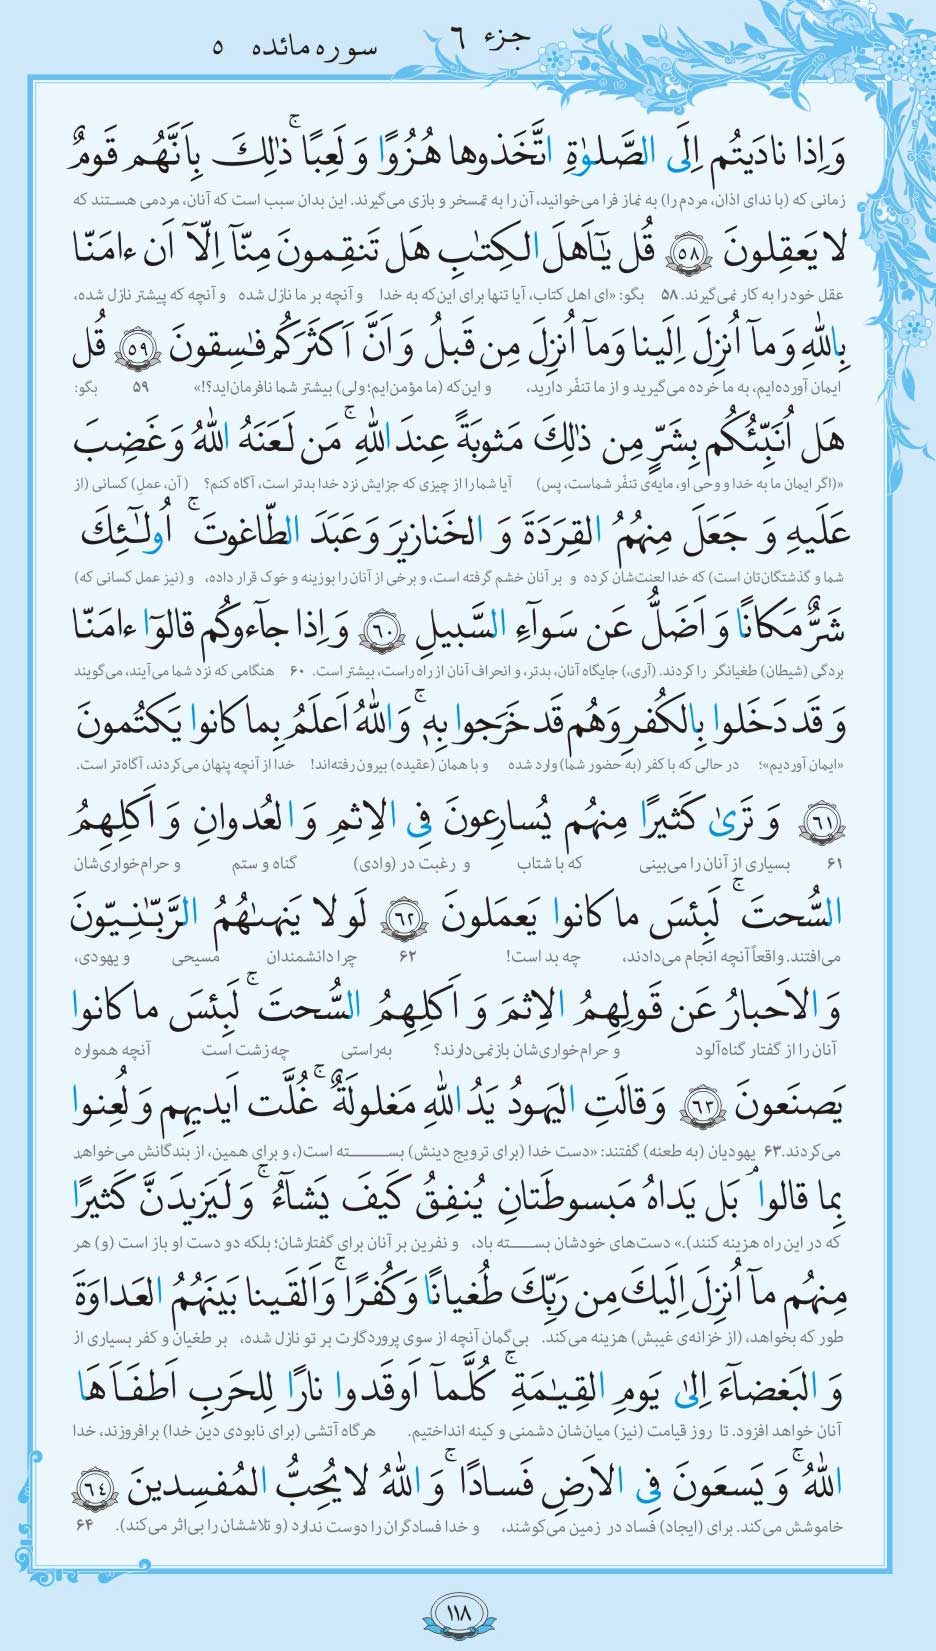 جزء ۶
سوره مائده ۵
وَ اِذا نادَیتُم اِلَی الصَّلوٰةِ اتَّخَذوها هُزُوًا وَ لَعِبًا ۚ ذٰلِكَ بِاَنَّهُم قَومٌ
زمانی که (با ندای اذان، مردم را) به نماز فرا می‌خوانید، آن را به تمسخر و بازی می‌گیرند. این بدان سبب است که آنان، مردمی هستند که
لا یَعقِلونَ ﴿۵۸﴾ قُل یٰٓاَهلَ الكِتٰبِ هَل تَنقِمونَ مِنّآ اِلّآ اَن ءامَنّا
عقل خود را به کار نمی‌گیرند. ۵۸ بگو: «ای اهل کتاب، آیا تنها برای این‌که به خدا و آنچه بر ما نازل شده و آنچه که پیشتر نازل شده،
بِاللّٰهِ وَ مآ اُنزِلَ اِلَینا وَ مآ اُنزِلَ مِن قَبلُ وَ اَنَّ اَكثَرَكُم فٰسِقونَ ﴿۵۹﴾ قُل
ایمان آورده‌ایم، به ما خرده می‌گیرید و از ما تنفّر دارید، و این‌که (ما مؤمن‌ایم؛ ولی) بیشتر شما نافرمان‌اید؟!» ۵۹ بگو:
هَل اُنَبِّئُكُم بِشَرٍّ مِن ذٰلِكَ مَثوبَةً عِندَ اللّٰهِ ۚ مَن لَعَنَهُ اللّٰهُ وَ غَضِبَ
«(اگر ایمان ما به خدا و وحی او، مایه‌ی تنفّر شماست، پس) آیا شما را از چیزی که جزایش نزد خدا بدتر است، آگاه کنم؟ (آن، عملِ) کسانی (از
عَلَیهِ وَ جَعَلَ مِنهُمُ القِرَدَةَ وَ الخَنازیرَ وَ عَبَدَ الطّاغوتَ ۚ اُولٰٓئِكَ
شما و گذشتگان‌تان است) که خدا لعنت‌شان کرده و بر آنان خشم گرفته است، و برخی از آنان را بوزینه و خوک قرار داده، و (نیز عمل کسانی که)
شَرٌّ مَكانًا وَ اَضَلُّ عَن سَوآءِ السَّبیلِ ﴿۶۰﴾ وَ اِذا جآءوكُم قالوٓا ءامَنّا
بردگی (شیطان) طغیانگر را کردند. (آری،) جایگاه آنان، بدتر، و انحراف آنان از راه راست، بیشتر است. ۶۰ هنگامی که نزد شما می‌آیند، می‌گویند
وَ قَد دَخَلوا بِالكُفرِ وَ هُم قَد خَرَجوا بِهٖ ۚ وَ اللّٰهُ اَعلَمُ بِما كانوا یَكتُمونَ
«ایمان آوردیم»؛ در حالی که با کفر (به حضور شما) وارد شده و با همان (عقیده) بیرون رفته‌اند! خدا از آنچه پنهان می‌کردند، آگاه‌تر است.
﴿۶۱﴾ وَ تَریٰ كَثیرًا مِنهُم یُسارِعونَ فِی الاِثمِ وَ العُدوانِ وَ اَكلِهِمُ
۶۱ بسیاری از آنان را می‌بینی که با شتاب و رغبت در (وادی) گناه و ستم و حرام‌خواری‌شان
السُّحتَ ۚ لَبِئسَ ما كانوا یَعمَلونَ ﴿۶۲﴾ لَو لا یَنهىٰهُمُ الرَّبّٰنِیّونَ
می‌افتند. واقعاً آنچه انجام می‌دادند، چه بد است! ۶۲ چرا دانشمندان مسیحی و یهودی،
وَ الاَحبارُ عَن قَولِهِمُ الاِثمَ وَ اَكلِهِمُ السُّحتَ ۚ لَبِئسَ ما كانوا
آنان را از گفتار گناه‌آلود و حرام‌خواری‌شان بازنمی‌دارند؟ به‌راستی چه زشت است آنچه همواره
یَصنَعونَ ﴿۶۳﴾ وَ قالَتِ الیَهودُ یَدُ اللّٰهِ مَغلولَةٌ ۚ غُلَّت اَیدیهِم وَ لُعِنوا
می‌کردند. ۶۳ یهودیان (به طعنه) گفتند: «دست خدا (برای ترویج دینش) بسته است(، و برای همین، از بندگانش می‌خواهد
بِما قالوا ۘ بَل یَداهُ مَبسوطَتانِ یُنفِقُ كَیفَ یَشآءُ ۚ وَ لَیَزیدَنَّ كَثیرًا
که در این راه هزینه کنند).» دست‌های خودشان بسته باد، و نفرین بر آنان برای گفتارشان؛ بلکه دو دست او باز است (و) هر
مِنهُم مآ اُنزِلَ اِلَیكَ مِن رَبِّكَ طُغیانًا وَ كُفرًا ۚ وَ اَلقَینا بَینَهُمُ العَداوَةَ
طور که بخواهد، (از خزانه‌ی غیبش) هزینه می‌کند. بی‌گمان آنچه از سوی پروردگارت بر تو نازل شده، بر طغیان و کفر بسیاری از
وَ البَغضآءَ اِلیٰ یَومِ القِیٰمَةِ ۚ كُلَّمآ اَوقَدوا نارًا لِلحَربِ اَطفَاَهَا
آنان خواهد افزود. تا روز قیامت (نیز) میان‌شان دشمنی و کینه انداختیم. هرگاه آتشی (برای نابودی دین خدا) برافروزند، خدا
اللّٰهُ ۚ وَ یَسعَونَ فِی الاَرضِ فَسادًا ۚ وَ اللّٰهُ لا یُحِبُّ المُفسِدینَ ﴿۶۴﴾
خاموشش می‌کند. برای (ایجاد) فساد در زمین می‌کوشند، و خدا فسادگران را دوست ندارد (و تلاششان را بی‌اثر می‌کند). ۶۴
۱۱۸